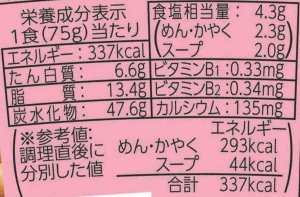 栄養成分表示
1食(75g)当たり
エネルギー:337kcal
たん白質: 6.6g
脂質: 13.4g
炭水化物: 47.6g
食塩相当量: 4.3g
(めん・かやく 2.3g
スープ 2.0g)
ビタミンB1:0.33mg
ビタミンB2:0.34mg
カルシウム:135mg
※参考値:
調理直後に
分別した値
エネルギー
めん・かやく 293kcal
スープ 44kcal
合計 337kcal